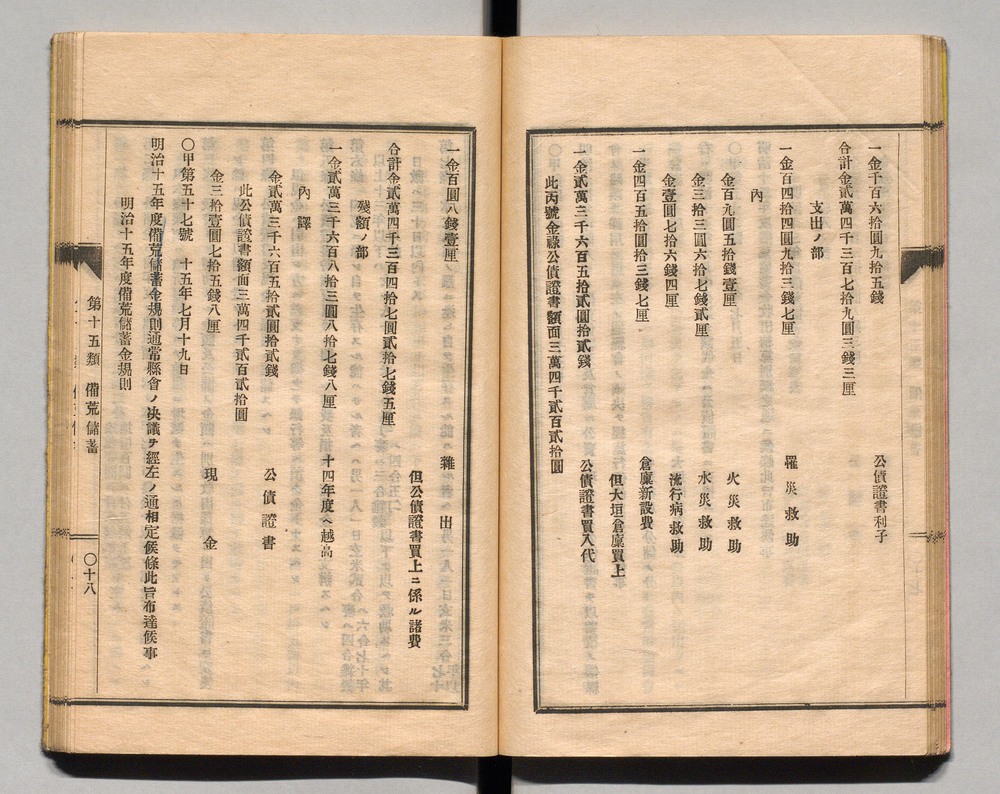 一金千百六拾圓九拾五錢　公債證書利子
合計金貳萬四千三百七拾九圓三錢三厘
支出ノ部
一金百四拾四圓九拾三錢七厘　罹災救助
內
金百九圓五拾錢壹厘　火災救助
金三拾三圓六拾七錢貳厘　水災救助
金壹圓七拾六錢四厘　流行病救助
一金四百五拾圓拾三錢七厘　倉廩新設費
但大垣倉廩買上
一金貳萬三千六百五拾貳圓拾貳錢　公債證書買入代
此丙號金祿公債證書額面三萬四千貳百貳拾圓
一金百圓八錢壹厘　雜出
但公債證書買上ニ係ル諸費
合計金貳萬四千三百四拾七圓貳拾七錢五厘
殘額ノ部
一金貳萬三千六百八拾三圓八拾七錢八厘　十四年度ヘ越高
內譯
金貳萬三千六百五拾貳圓拾貳錢　公債證書
此公債證書額面三萬四千貳百貳拾圓
金三拾壹圓七拾五錢八厘　現金
〇甲第五十七號　十五年七月十九日
明治十五年度備荒儲蓄金規則通常縣會ノ決議ヲ經左ノ通相定候條此旨布達候事
明治十五年度備荒儲蓄金規則
第十五類　備荒儲蓄
〇十八